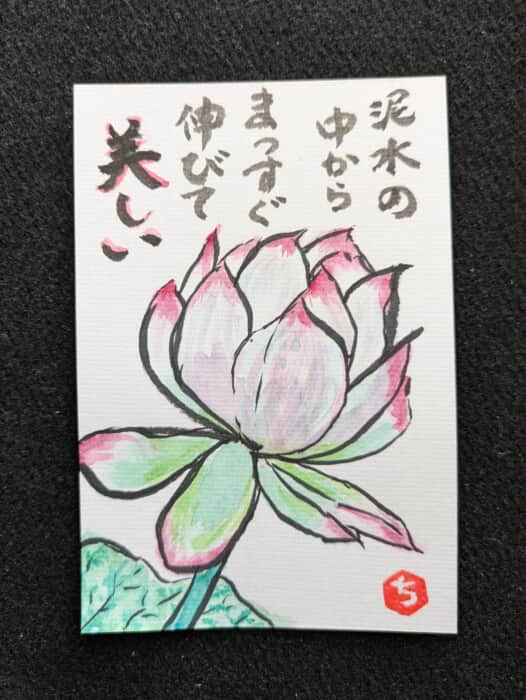 泥水の
中から
まっすぐ
伸びて
美しい
ち